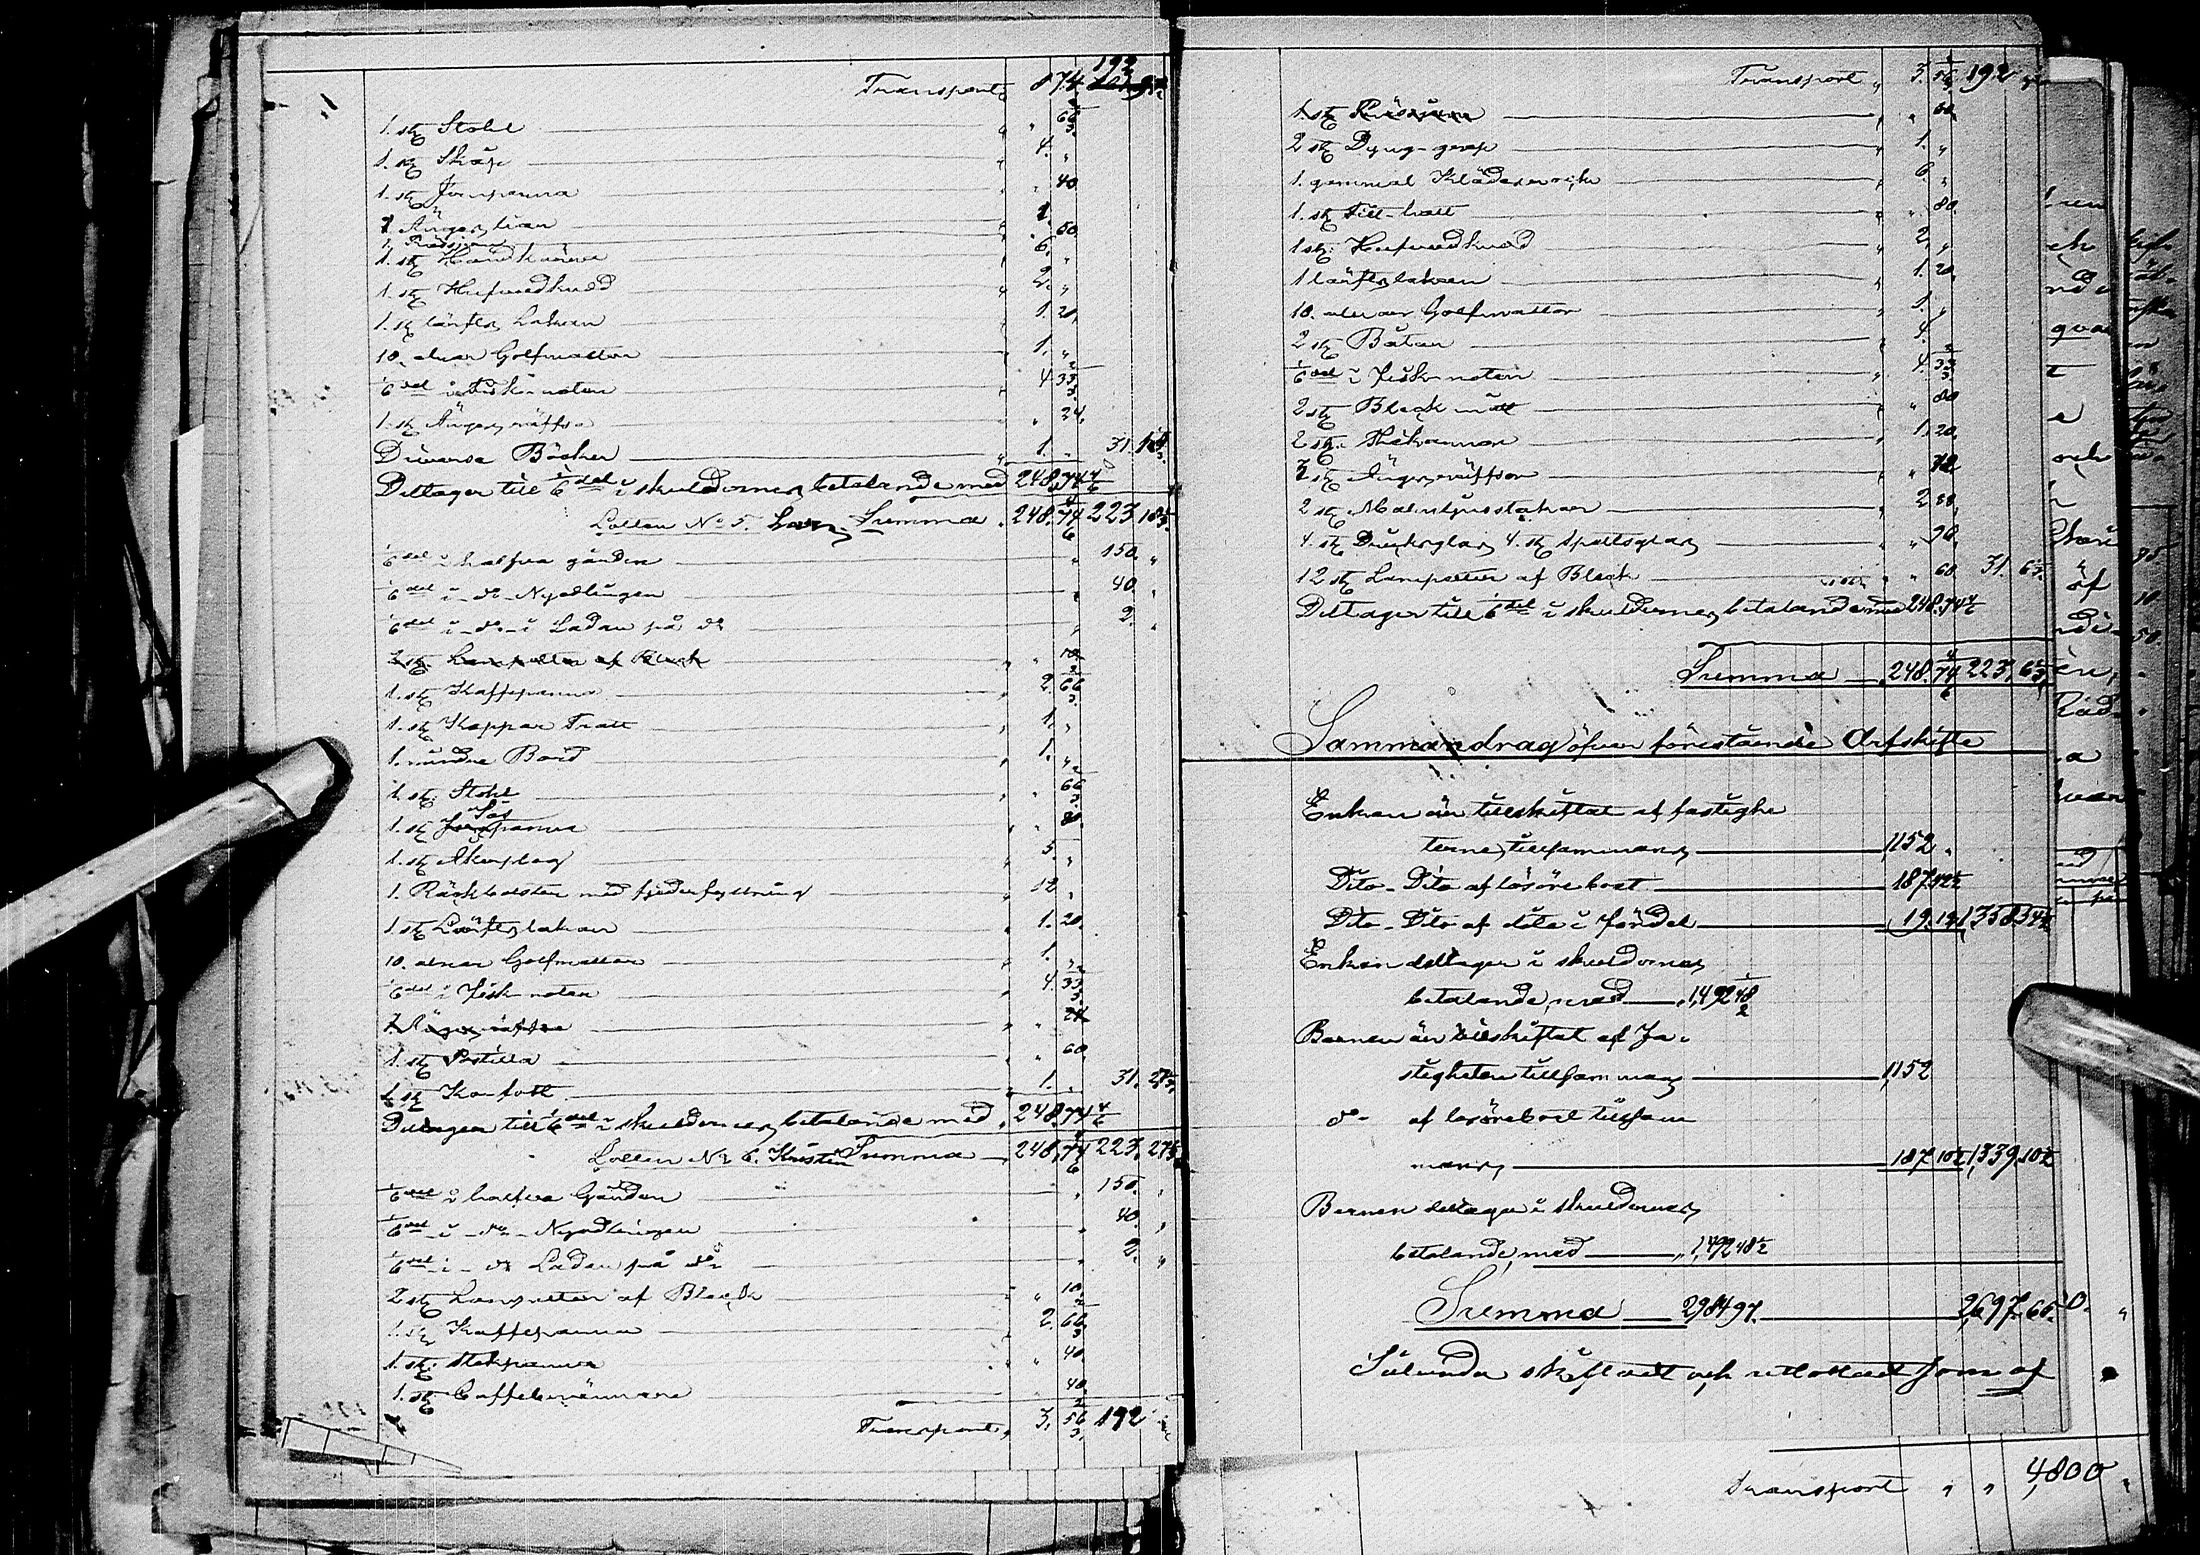 Transport 8 74 192
1. st Stohl " 66 2/3
1. st Skåp 4. "
1. st Jernpanna " 40
1 Ånger, lian 1.
1. Trädsjern " 50
1. st Handkärra 6. "
1. st Hufvudkudd 2. "
1. st lärfts, Lakan 1. 20
10. alnar Golfmattor 1. "
1/6 del i Fisk-noten 4 33 2/3
1. st Ånger, räffsa " 24.
Diverse Böcker 1. 31.
Deltager till 1/6 del i skulderne, betalande med 248,74 4/6
Lotten No 5. Summa 248.74 4/6 223 18 1/3
1/6 del i halfva gården " 150. "
1/6 del i do Nyodlingen " 40. "
1/6 del i do i Ladan på do " 2. "
2 st. Lampetter af Bleck " 10
1. st Kaffepanna 2. 66 2/3
1. st Koppar Tratt 1. "
1. rundne Bord 1. "
1. st. Stohl " 66 2/3
1. st Jernpanna " 80.
1. st Åkerplog 5. "
1. Räckbolster med fjederfyllning 12 "
1. st Lärfts, lakan 1. 20.
10. alnar Golfmattor 1. "
1/6 del i Fisk-noten 4. 33 2/3
1. Ånger, räffsa " 24
1. st Postilla " 60
1. st Korfott 1. " 31. 27 1/3
Deltager till 1/6 del i skulderne, betalande med 248,74 4/6
Lotten No 6. Kristin Summa 248,74 4/6 223. 27 1/3
1/6 del i halfva Gården " 150. "
1/6 del i do Nyodlingen " 40. "
1/6 del i do Ladan på do " 2. "
2 st Lampetter af Bleck " 10
1. st Kaffepanna 2. 66 2/3
1. st. stekpanna " 40.
1. st Caffebrännare " 40
Transport 3. 56 2/3 192
Transport 3. 56 2/3 192
1. st " 60.
2 st Dyng-grep 1. "
1. gammal Klädesrock 6. "
1. st Filt-hatt " 80.
1 st. Hufvudkudd 2. "
1 lärfts, lakan 1. 20.
10. alnar Golfmattor 1. "
2 st Båtar 4.
1/6 del i Fisk-noten 4. 33 2/3
2 st Bleck mått " 80
2 st. Thekannor 1. 20.
3 st Ånger, räffsor " 72
2 st Malmljusstakar 2 88
4. st Dricksglas, 4. st spetsglas " 90.
12 st Lampetter af Bleck " 60 31. 65 1/3
Deltager till 1/6 del i skulderne, betalande med 248.74 4/6
Summa 248.74 4/6 223, 65 1/3
Sammandrag öfver förestående Arfskifte
Enkan är tillskiftat af fastighe
terne, tillsammans, 1152 "
Dito - Dito af lösöre boet 187,42 1/2
Dito - Dito af dela i fördel 19.12 1358 34 1/2
Enkan deltager i skulderne,
betalande, med 1,492 48 1/2
Barnen är tillskiftat af Fa-
stigheten tillsammans, 1152
do af lösöreboet tillsam
mans, 187. 10 1/2 1,339 10 1/2
Barnen deltaga i skulderne,
betalande, med 1,492 48 1/2
Summa 2984 97. 2,697. 65
Sålunda skiftadt och utlottadt som af
Transport " " 4,800